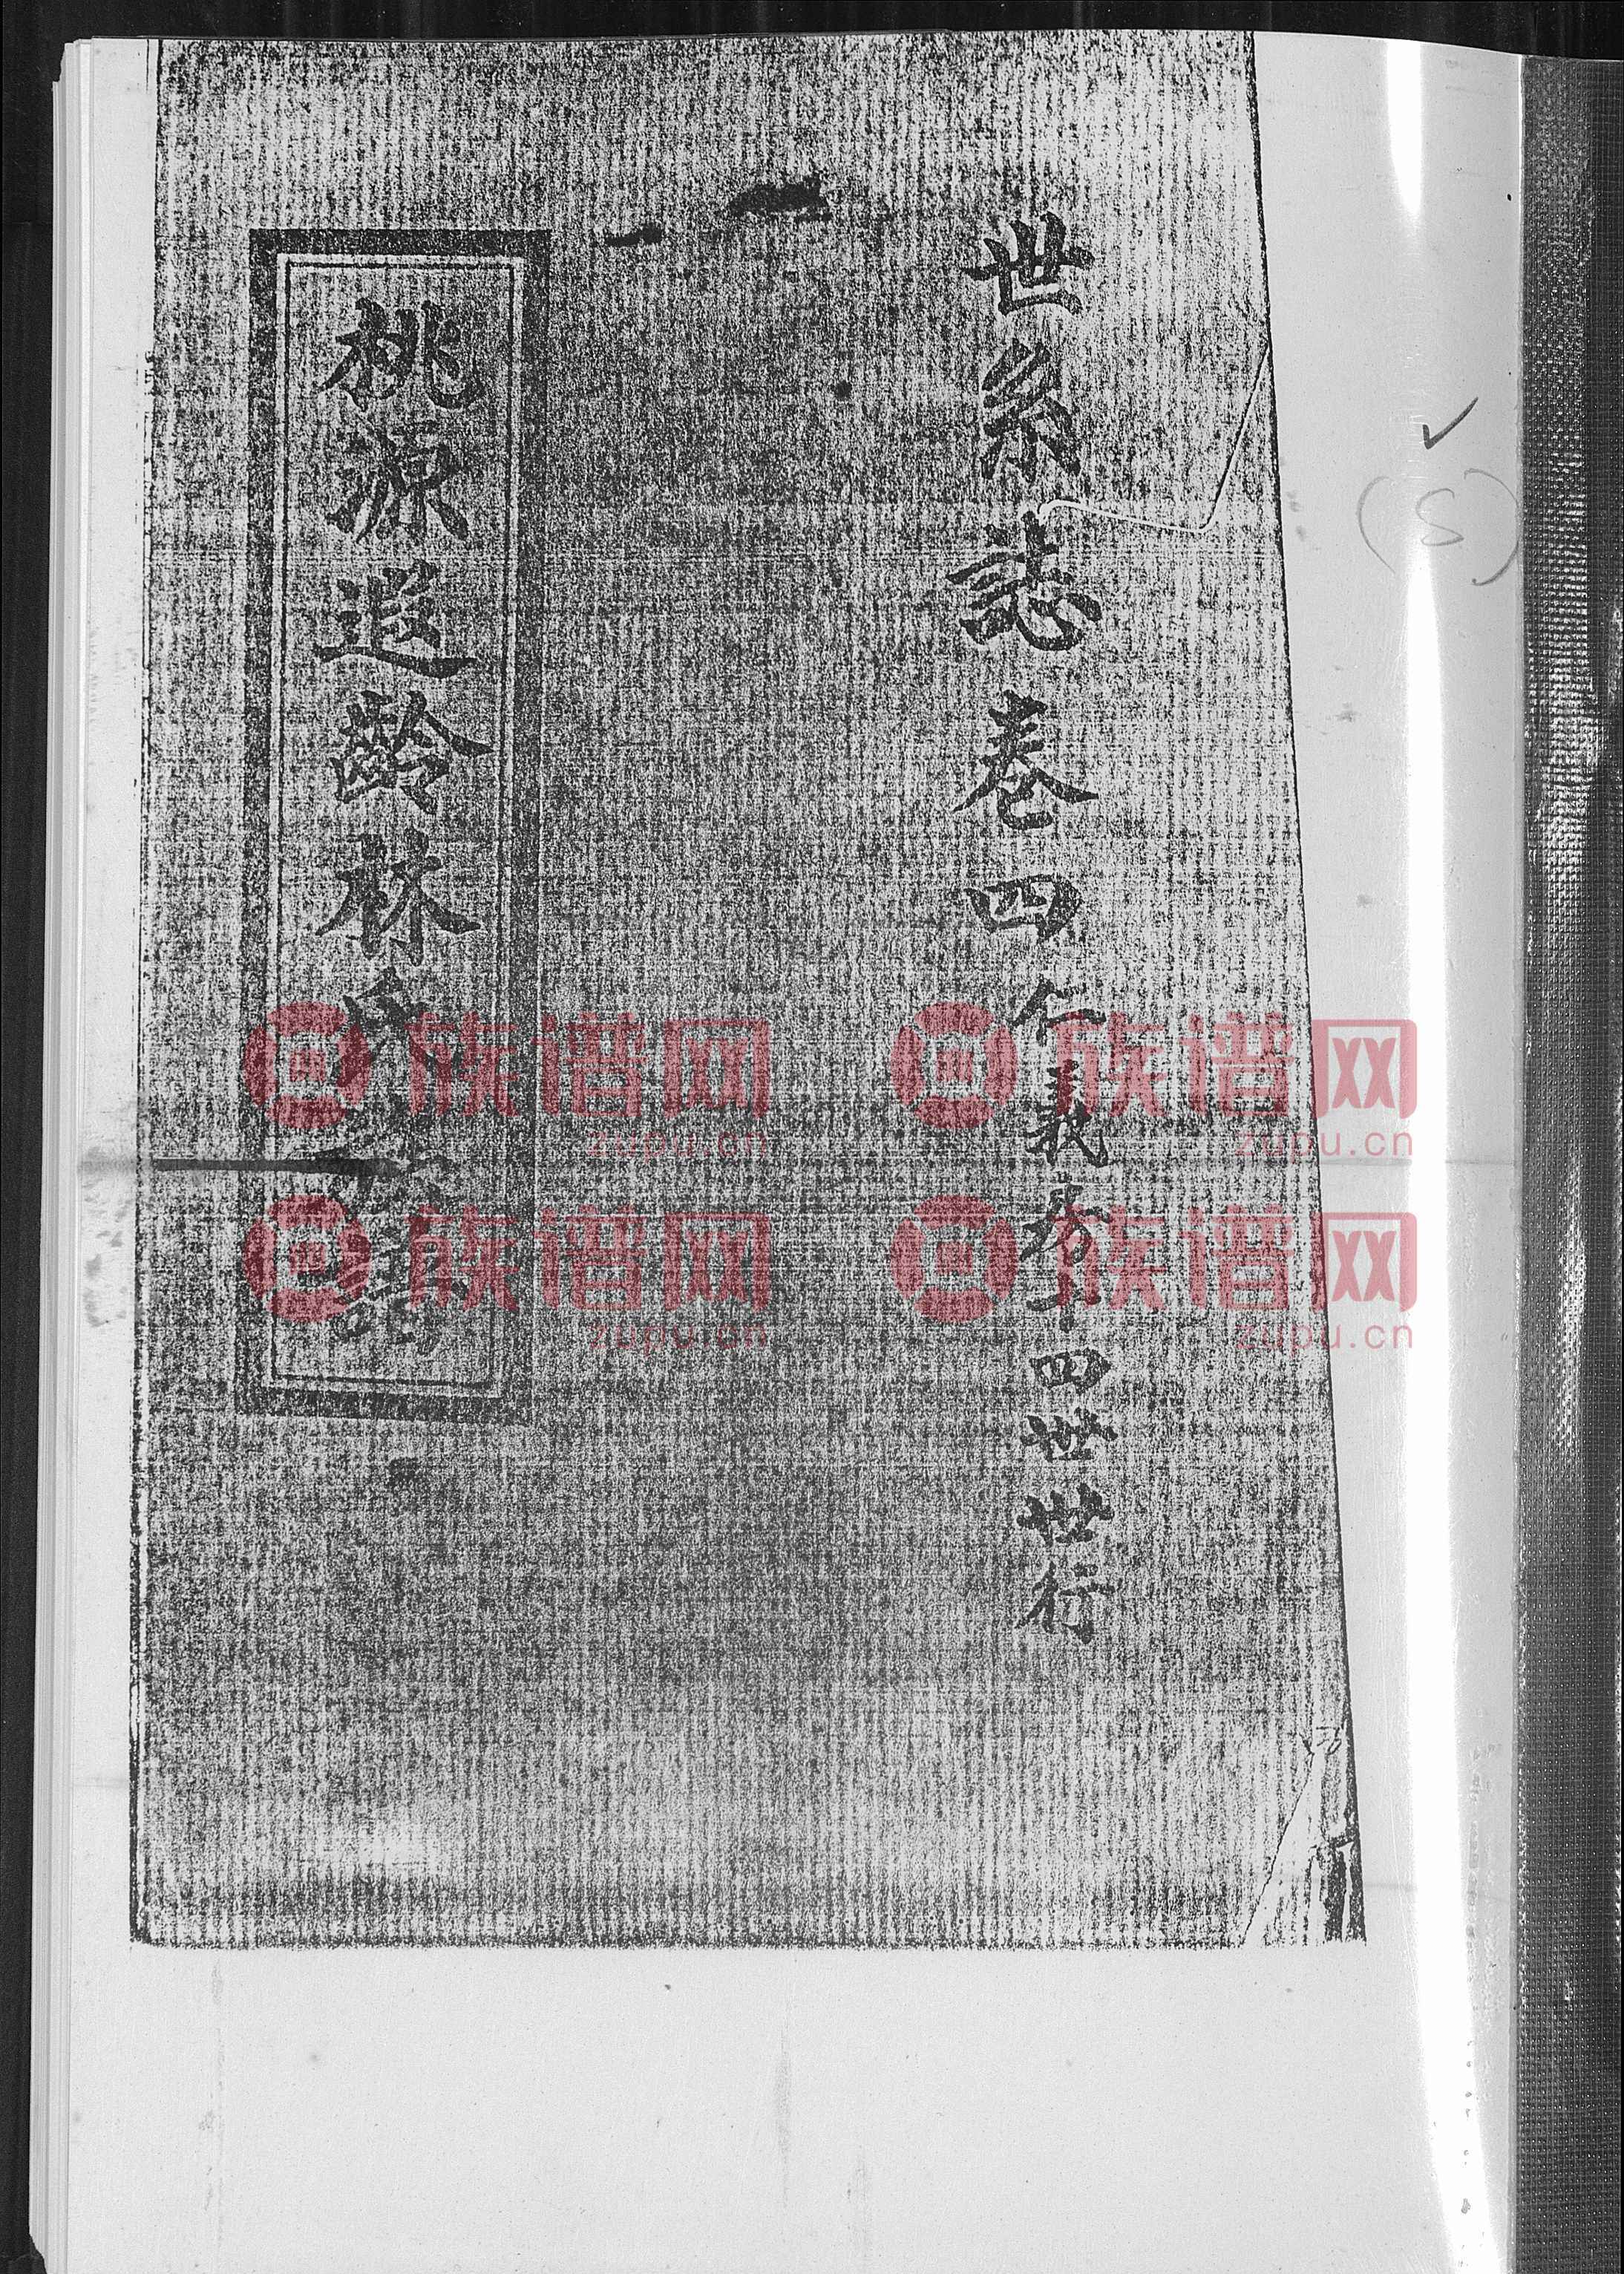 世系誌卷四仁義房十四世世行
桃源遐齡林氏家譜
(S)
族谱网 族谱网
zupu.cn zupu.cn
族谱网 族谱网
zupu.cn zupu.cn